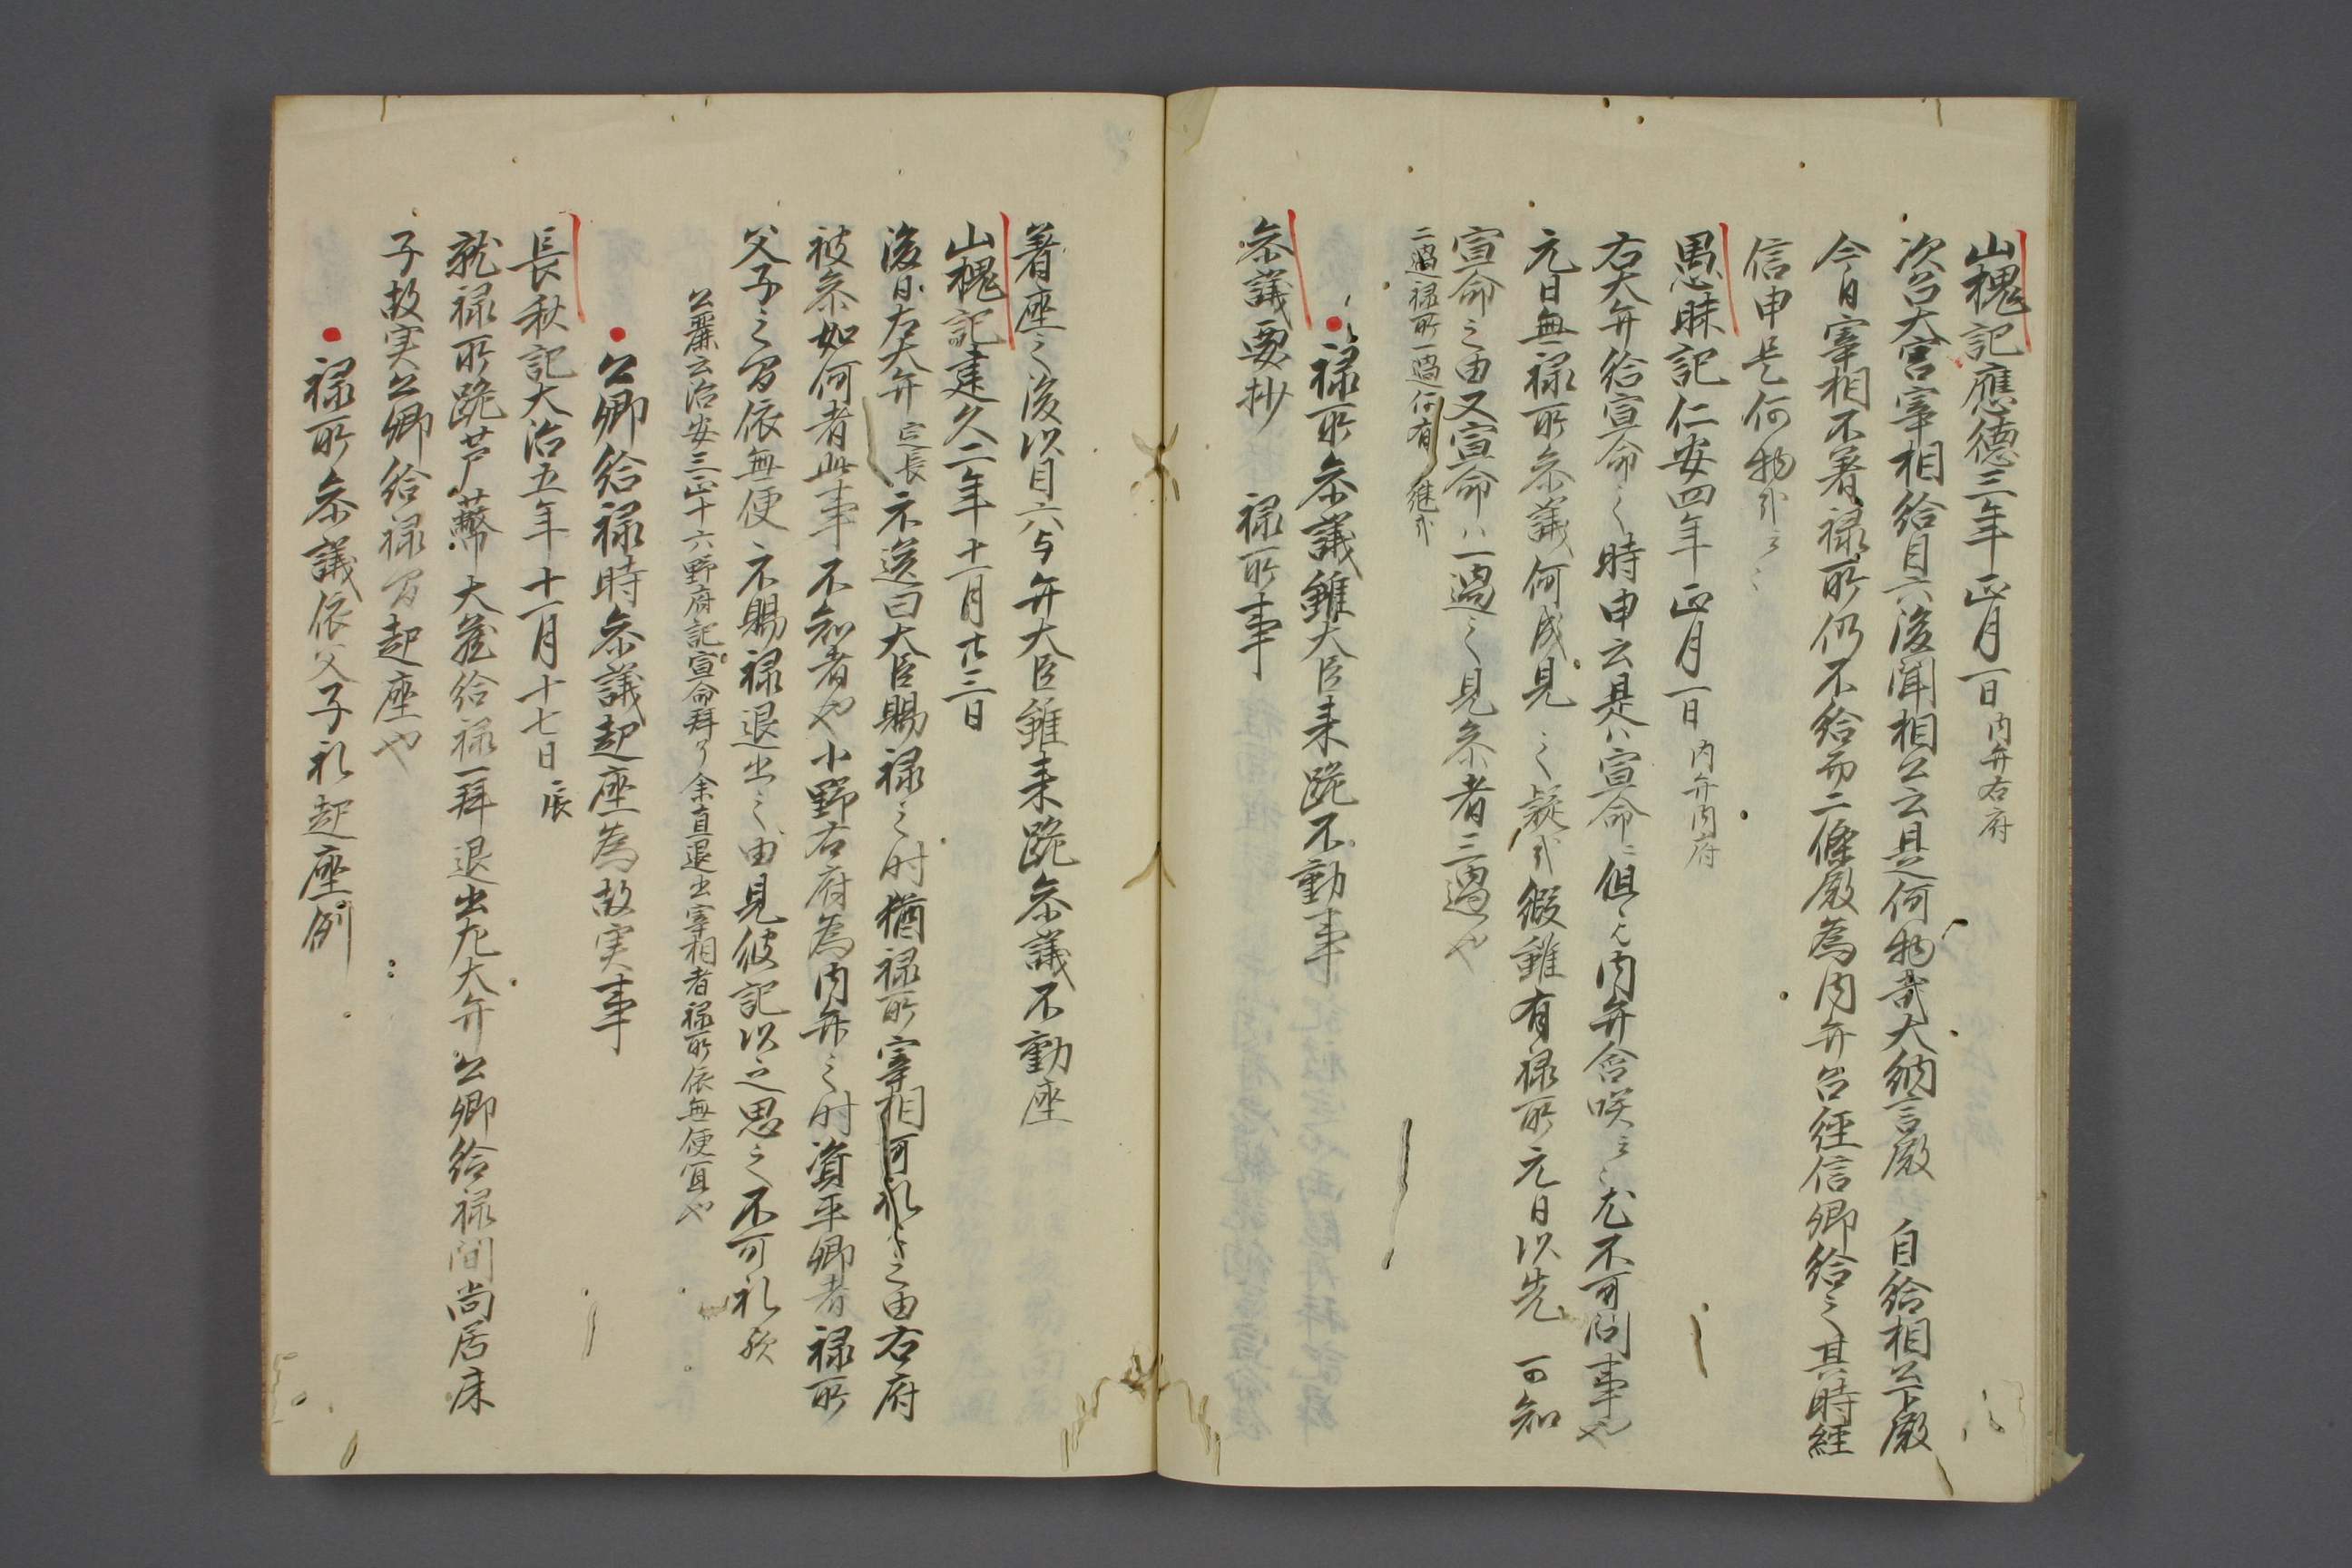 山槐記應徳三年正月一日内弁右府
次召大宮宰相給目六後聞相公云是何物哉大納言殿 自給相公下殿
今日宰相不著禄所仍不給而二條殿為内弁召経信卿給之其時経
信申是何物哉云々
愚昧記仁安四年正月一日内弁内府
右大弁給宣命之時申云是ハ宣命ニ但之内弁含咲云々尤不可問事也
元日無禄所参議何成見之疑哉縦雖有禄所元日以先 可知
宣命之由又宣命ハ一過之見参者三過也
二過禄所一過何有 哉
禄所参議雖大臣来跪不動事
参議要抄 禄所事
著座之後以目六与弁大臣雖来跪参議不動座
山槐記建久二年十一月廿三日
後日右大弁定長不送曰大臣賜禄之時猶禄所宰相可礼之由右府
被参如何者此事不知者也小野右府為内弁之時資平卿者禄所
父子之間依無便不賜禄退出之由見彼記以之思之不可礼歟
公麗云治安三正十六野府記宣命拜了余直退出宰相者禄所依無便宜也
公卿給禄時参議起座為故実事
長秋記大治五年十一月十七日辰
就禄所跪芦弊大蔵給禄一拜退出左大弁公卿給禄間尚居床
子故実公卿給禄間起座也
禄所参議依父子礼起座例